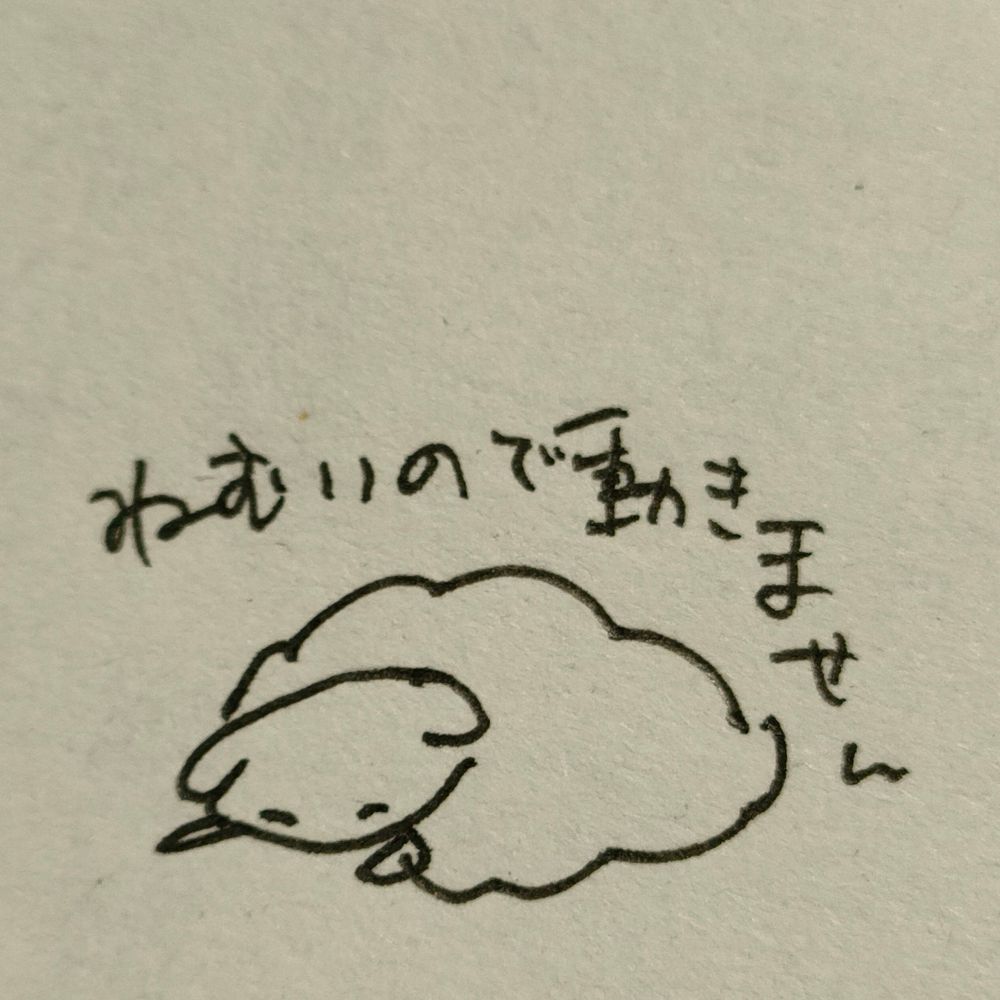 ねむいので動きません